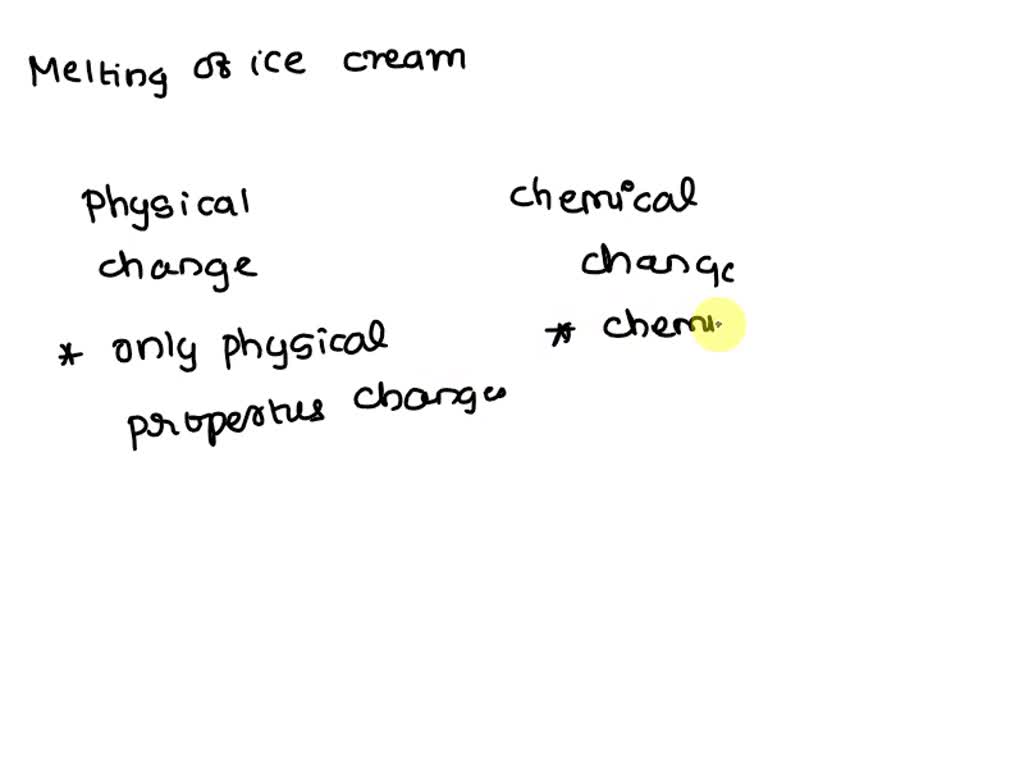 Melting of ice cream
Physical
change
* only physical
properties changes
chemical
change
* chemi